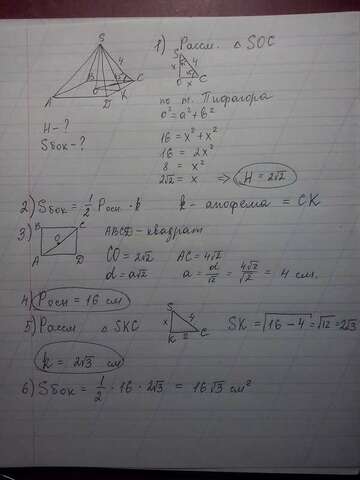 1) Рассм. △ SOC
S
4
B
C
45
O
K
A
D
S
45
4
x
45
O x C
H - ?
Sбок - ?
по т. Пифагора
c² = a² + b²
16 = x² + x²
16 = 2x²
8 = x²
2√2 = x ⇒ H = 2√2
2) Sбок = 1/2 Pосн · k   k - апофема = CK
3) B C
O
A D
ABCD - квадрат
CO = 2√2   AC = 4√2
d = a√2   a = d/√2 = 4√2/√2 = 4 см.
4) Pосн = 16 см
5) Рассм △ SKC
S
x 4
K 2 C
SK = √16 - 4 = √12 = 2√3
k = 2√3 см
6) Sбок = 1/2 · 16 · 2√3 = 16√3 см²